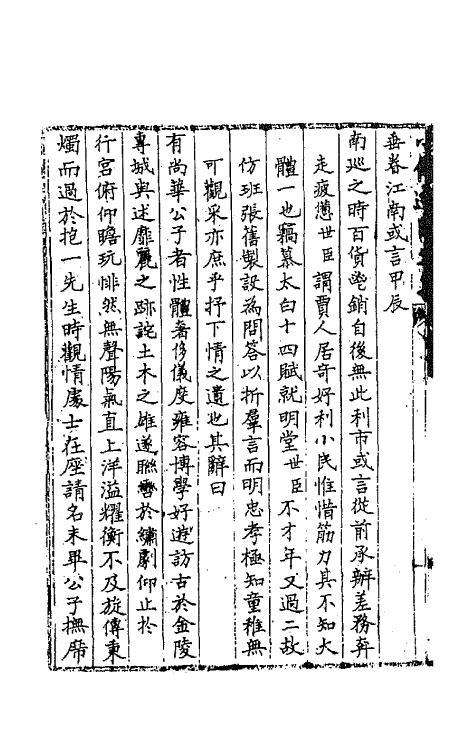 垂眷江南或言甲辰
南巡之時百貨暢銷自後無此利市或言從前承辦差務奔
走疲憊世臣謂賈人居奇好利小民惟惜筋力其不知大
體一也竊慕太白十四賦就明堂世臣不才年又過二故
仿班張舊製設為問答以折羣言而明忠孝極知童稚無
可觀采亦庶乎抒下情之遺也其辭曰
有尚華公子者性體著侈儀度雍容博學好遊訪古於金陵
專城與述靡麗之跡詫土木之雄遂聯轡於繡劇仰止於
行宮俯仰瞻玩悱然無聲陽氣直上洋溢耀衡不及旋傳秉
燭而過於抱一先生時觀情處士在座請名未畢公子撫席